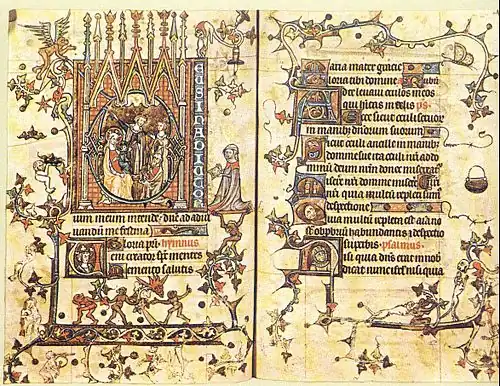 EUS IN ADIUTO
rium meum intende. dñe ad adiu
uandũ me festina
Gloria pri. hymnus
emento salutis
aria mater gracie
loria tibi domine.
d te leuaui oculos meos
qui hitas in celis ps
cce sicut oculi seruor
in manib; dñorum suorum
icut oculi ancille in manib;
domine sue ita oculi nri ad do
minũ deum nrm donec misereat
nri miserere nri dñe miserere
nri. quia multũ repleti sum
despectione
uia multũ repleta est aia nra
obprobriũ habundantib; et despectio
superbis. psalmus.
isi quia dñs erat in nob
dicat nunc isrl nisi quia